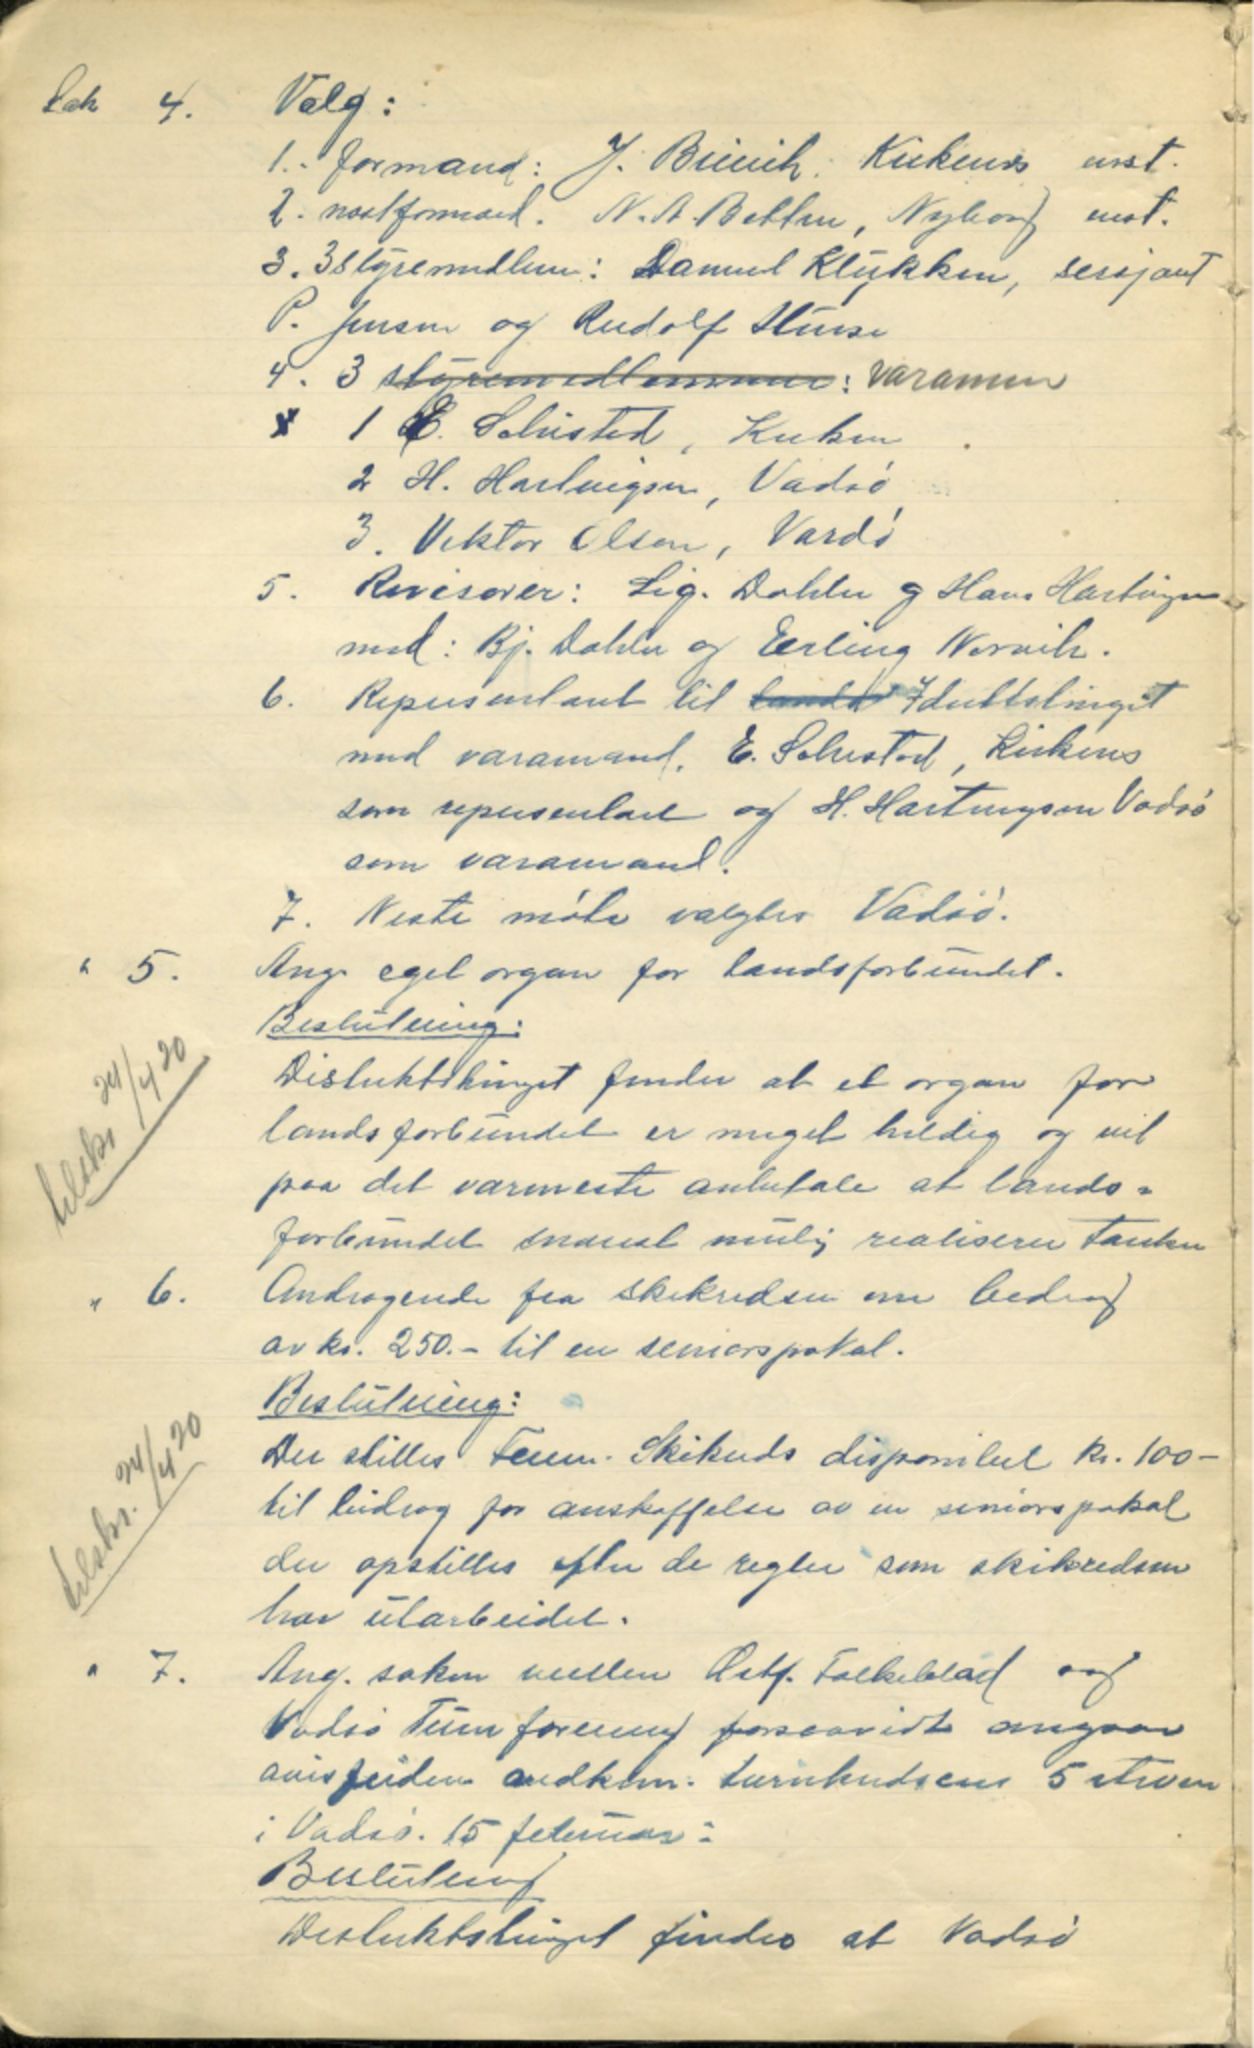 Sak 4. Valg:
1. formand: J. Kirkenes enst.
2. næstformand. N. A. Nyborg enst.
3. 3 styremedlem: Daniel Klykken, sersjant
P. Jensen og Rudolf
4. 3 styremedlemmer: varamen
1 E. Solnistad, Kirken
2 H. Hartvigsen, Vadsö
3. Viktor Olsen, Vardö
5. Revisorer: Sig. Dahler og Hans Hartvigsen
med: Bj. Dahler og Erling Norvik.
6. Representant til landst Idrettstinget
med varamand. E. Solnistad, Kirkenes
som representant og H. Hartvigsen Vadsö
som varamand.
7. Neste möte valgtes Vadsö.
" 5. Ang. eget organ for landsforbundet.
Beslutning:
tilskr. 24/4 20
Distriktstinget finder at et organ for
landsforbundet er meget heldig og vil
paa det varmeste anbefale at lands-
forbundet snarest mulig realiserer tanken
" 6. Andragende fra skikredsen om bedrag
av kr. 250.- til en seniorspokal.
Beslutning:
tilskr. 24/4 20
Der stilles Finm. Skikreds disponibel kr. 100-
til bidrag for anskaffelse av en seniorspokal
der opstilles efter de regler som skikredsen
har utarbeidet.
" 7. Ang. saken mellem Østf. Folkeblad og
Vadsö Turnforening forsaavidt angaar
avisfeiden vedkom. turnkredsens 5 stevne
i Vadsö. 15 februar:
Beslutning
Distriktstinget finder at Vadsö